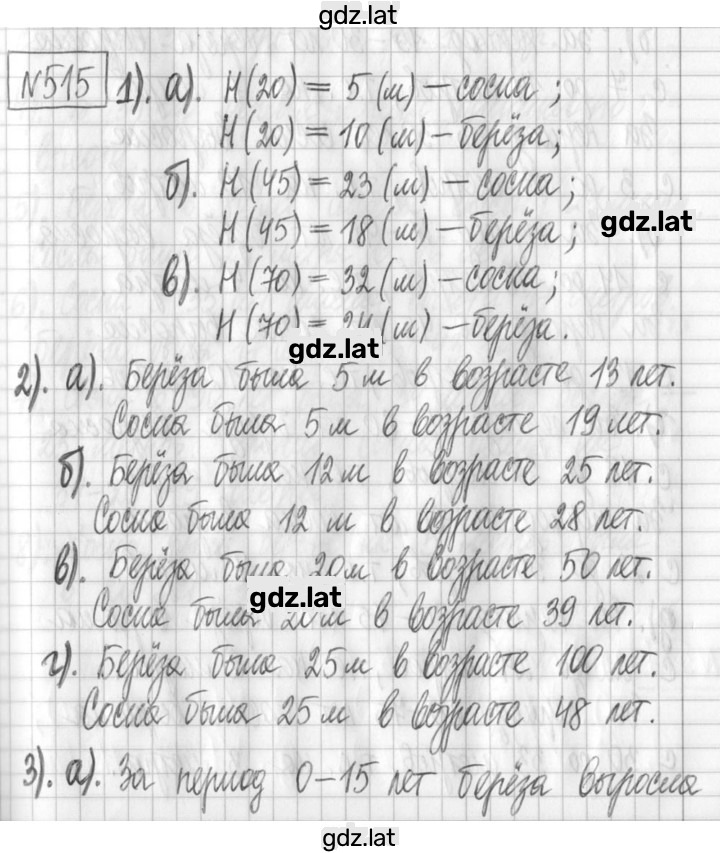 gdz.lat
№515 1). а). H(20) = 5 (м) – сосна ;
H(20) = 10 (м) – берёза;
б). H(45) = 23 (м) – сосна ;
H(45) = 18 (м) – берёза ;
gdz.lat
в). H(70) = 32 (м) – сосна;
H(70) = 24 (м) – берёза.
gdz.lat
2). а). Берёза была 5 м в возрасте 13 лет.
Сосна была 5 м в возрасте 19 лет.
б). Берёза была 12 м в возрасте 25 лет.
Сосна была 12 м в возрасте 28 лет.
в). Берёза была 20м в возрасте 50 лет.
gdz.lat
Сосна была 20 м в возрасте 39 лет.
г). Берёза была 25 м в возрасте 100 лет.
Сосна была 25 м в возрасте 48 лет.
3). а). За период 0–15 лет берёза выросла
gdz.lat